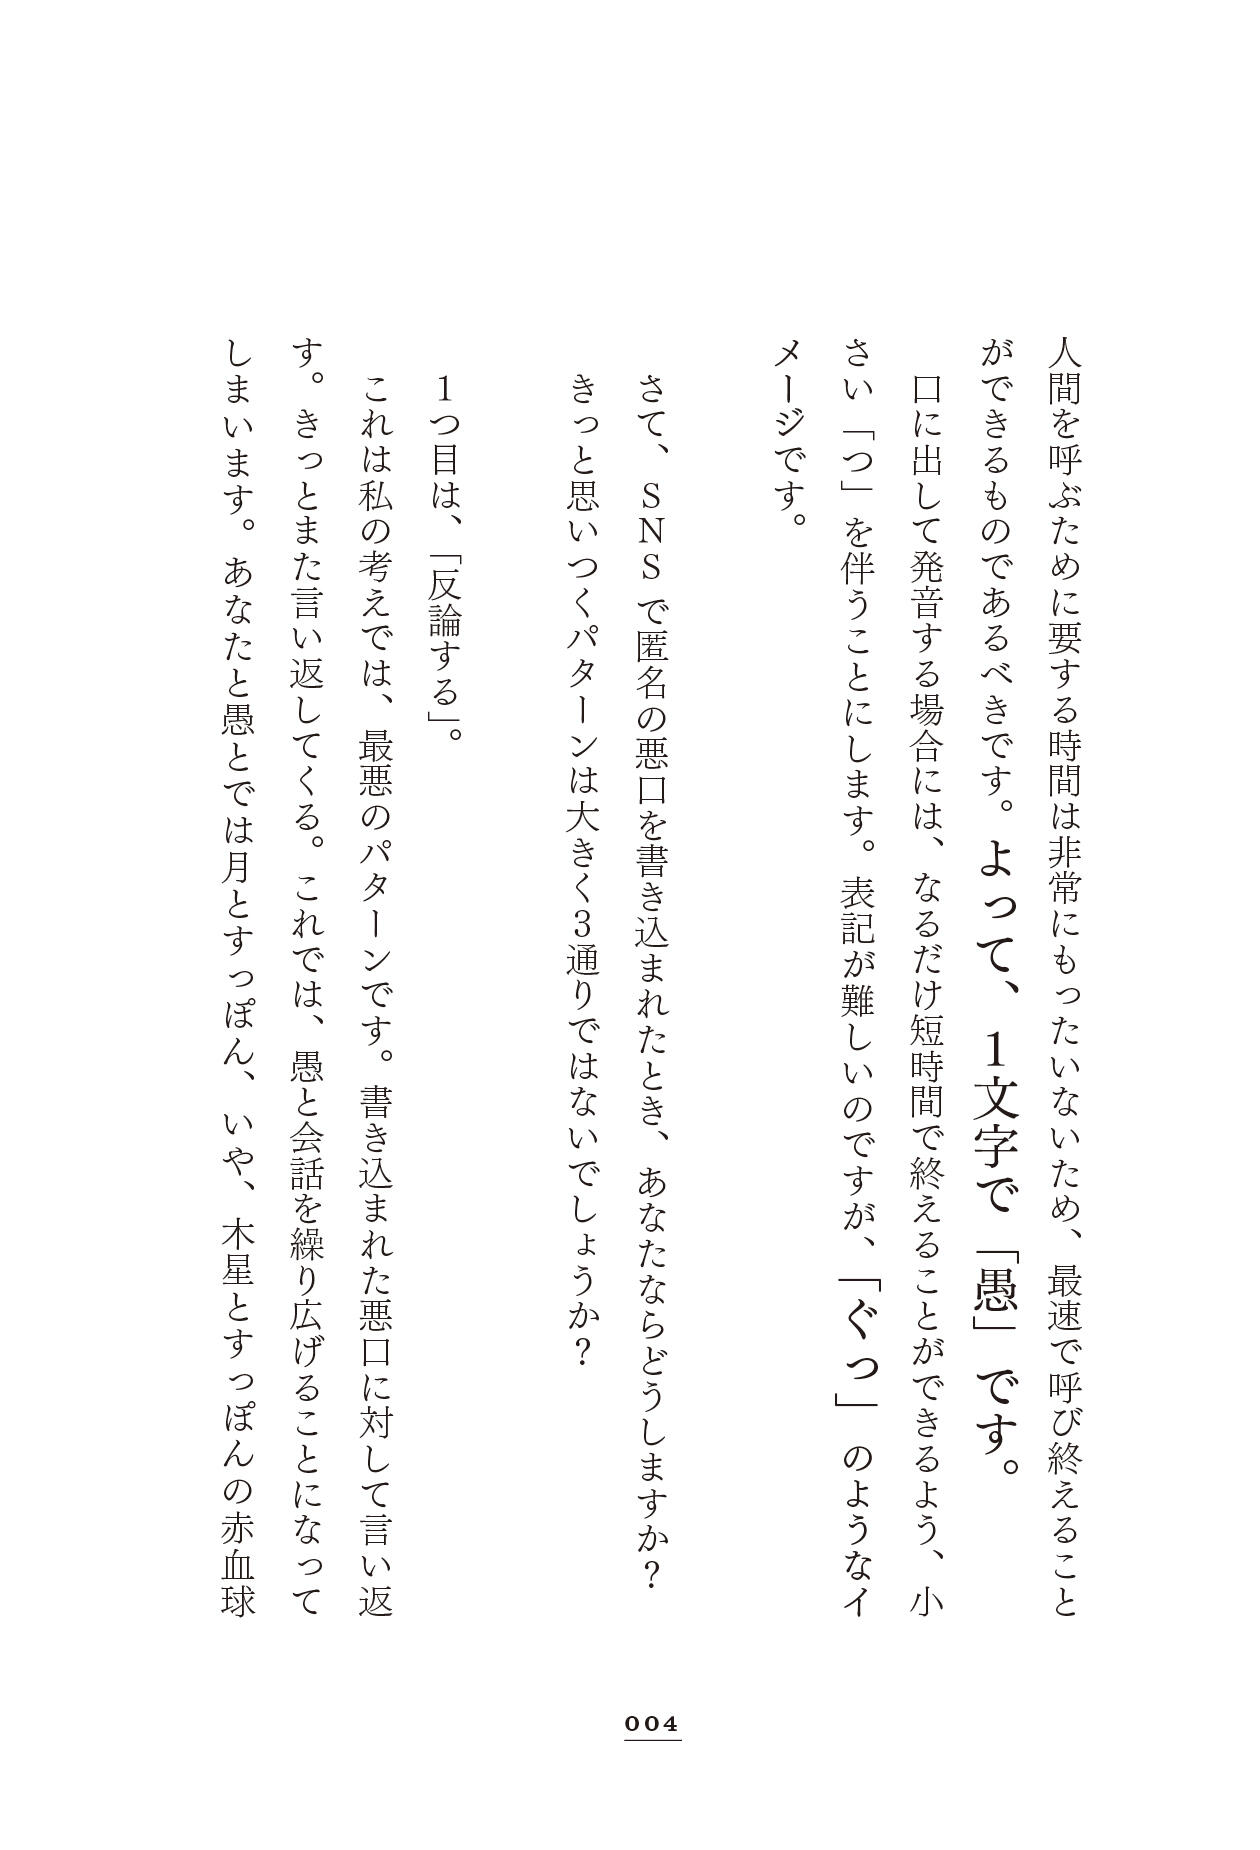 人間を呼ぶために要する時間は非常にもったいないため、最速で呼び終えること
ができるものであるべきです。よって、1文字で「愚」です。
口に出して発音する場合には、なるだけ短時間で終えることができるよう、小
さい「つ」を伴うことにします。表記が難しいのですが、「ぐっ」のようなイ
メージです。
さて、SNSで匿名の悪口を書き込まれたとき、あなたならどうしますか?
きっと思いつくパターンは大きく3通りではないでしょうか?
1つ目は、「反論する」。
これは私の考えでは、最悪のパターンです。書き込まれた悪口に対して言い返
す。きっとまた言い返してくる。これでは、愚と会話を繰り広げることになって
しまいます。あなたと愚とでは月とすっぽん、いや、木星とすっぽんの赤血球
004